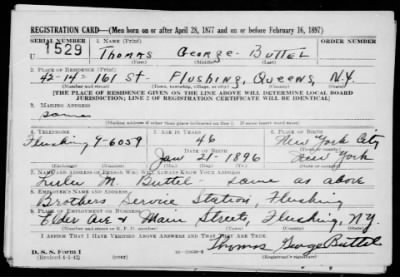 REGISTRATION CARD—(Men born on or after April 28, 1877 and on or before February 16, 1897)
SERIAL NUMBER 1. NAME (Print) ORDER NUMBER
U 1529 Thomas George Buttel
(First) (Middle) (Last)
2. PLACE OF RESIDENCE (Print)
42-14-161 St. Flushing, Queens, N.Y.
(Number and street) (Town, township, village, or city) (County) (State)
[THE PLACE OF RESIDENCE GIVEN ON THE LINE ABOVE WILL DETERMINE LOCAL BOARD
JURISDICTION; LINE 2 OF REGISTRATION CERTIFICATE WILL BE IDENTICAL]
3. MAILING ADDRESS
same
4. TELEPHONE 5. AGE IN YEARS 6. PLACE OF BIRTH
46 New York City
Flushing 9-6059 DATE OF BIRTH
Jan 21- 1896 New York
7. NAME AND ADDRESS OF PERSON WHO WILL ALWAYS KNOW YOUR ADDRESS
Lulu M. Buttel - same as above
8. EMPLOYER'S NAME AND ADDRESS
Brothers Service Station, Flushing
9. PLACE OF EMPLOYMENT OR BUSINESS
Elder Ave & Main Streets, Flushing, NY
I AFFIRM THAT I HAVE VERIFIED ABOVE ANSWERS AND THAT THEY ARE TRUE.
D. S. S. Form 1
(Revised 4-1-42) Thomas George Buttel